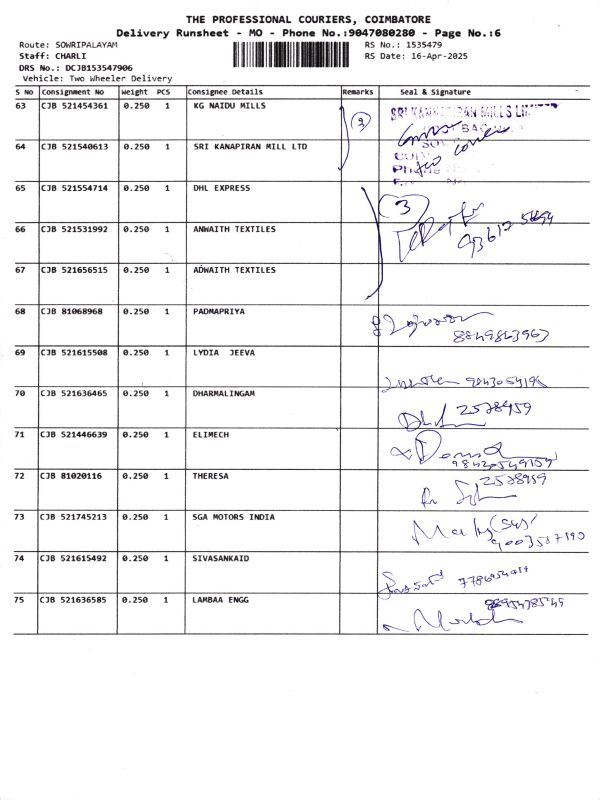 THE PROFESSIONAL COURIERS, COIMBATORE
Delivery Runsheet - MO - Phone No.:9047080280 - Page No.:6
Route: SOWRIPALAYAM RS No.: 1535479
Staff: CHARLI RS Date: 16-Apr-2025
DRS No.: DCJB153547906
Vehicle: Two Wheeler Delivery
S No Consignment No Weight PCS Consignee Details Remarks Seal & Signature
63 CJB 521454361 0.250 1 KG NAIDU MILLS
64 CJB 521540613 0.250 1 SRI KANAPIRAN MILL LTD
65 CJB 521554714 0.250 1 DHL EXPRESS 3
66 CJB 521531992 0.250 1 ANWAITH TEXTILES
67 CJB 521656515 0.250 1 ADWAITH TEXTILES
68 CJB 81068968 0.250 1 PADMAPRIYA
8849843963
69 CJB 521615508 0.250 1 LYDIA JEEVA
70 CJB 521636465 0.250 1 DHARMALINGAM 2528959
71 CJB 521446639 0.250 1 ELIMECH
72 CJB 81020116 0.250 1 THERESA 2528959
73 CJB 521745213 0.250 1 SGA MOTORS INDIA
74 CJB 521615492 0.250 1 SIVASANKAID
75 CJB 521636585 0.250 1 LAMBAA ENGG